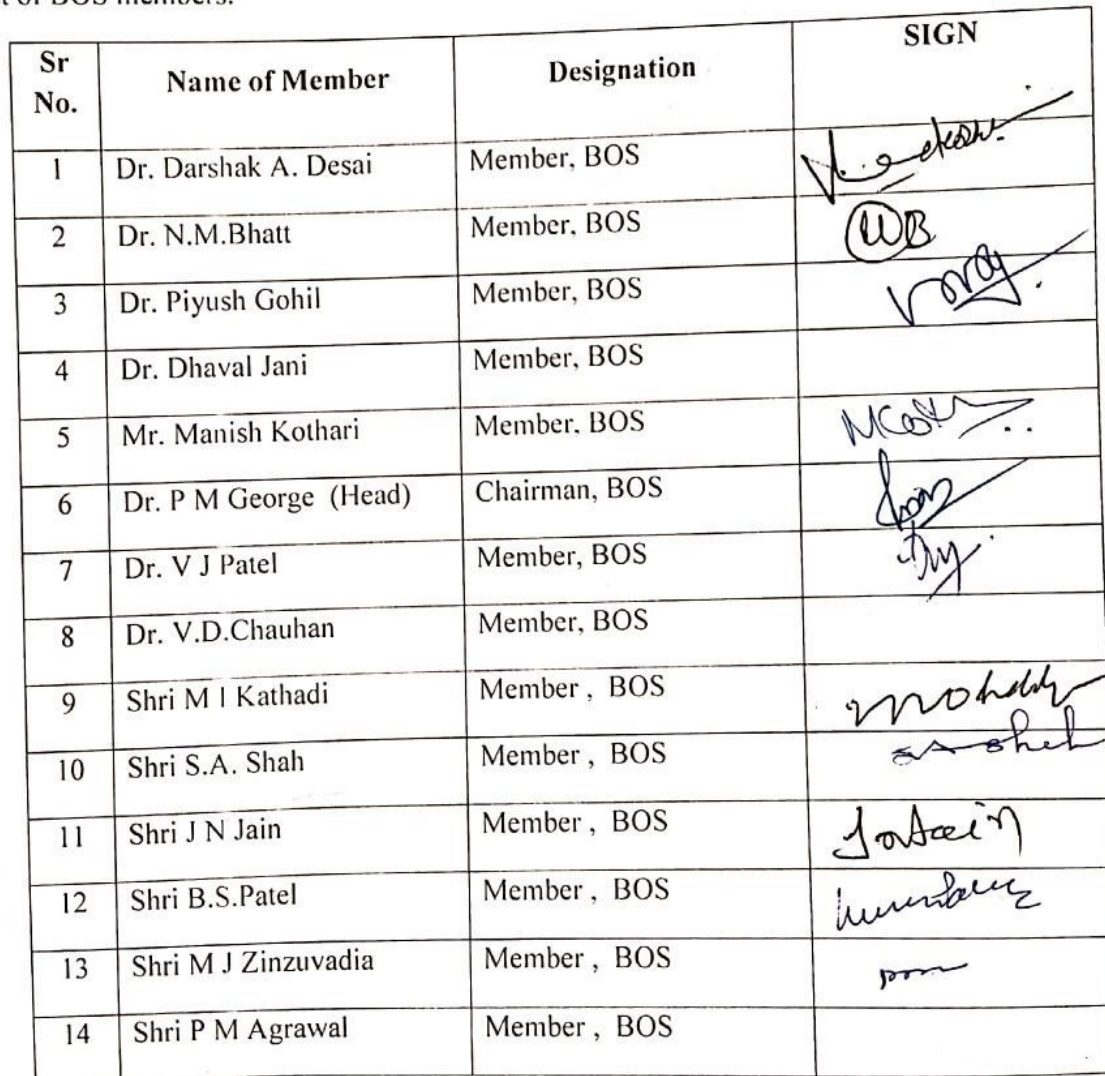 of BOS members.
Sr No. Name of Member Designation SIGN
1 Dr. Darshak A. Desai Member, BOS
2 Dr. N.M.Bhatt Member, BOS
3 Dr. Piyush Gohil Member, BOS
4 Dr. Dhaval Jani Member, BOS
5 Mr. Manish Kothari Member, BOS
6 Dr. P M George (Head) Chairman, BOS
7 Dr. V J Patel Member, BOS
8 Dr. V.D.Chauhan Member, BOS
9 Shri M I Kathadi Member , BOS
10 Shri S.A. Shah Member , BOS
11 Shri J N Jain Member , BOS
12 Shri B.S.Patel Member , BOS
13 Shri M J Zinzuvadia Member , BOS
14 Shri P M Agrawal Member , BOS